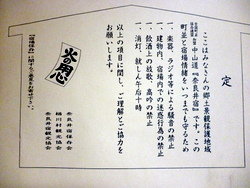 定
ここはみなさんの郷土景観保護地域
中山道『奈良井宿』です。この
町並と宿場情緒をいつまでも守るため
一、楽器、ラジオ等による騒音の禁止
一、建物内、宿場内での迷惑行為の禁止
一、飲酒上の放歌、高吟の禁止
一、消灯、就しん午后十時
以上の項目に関し、ご理解とご協力を
お願いします。
火の用心
奈良井宿保存会
楢川村観光協会
奈良井宿観光協会